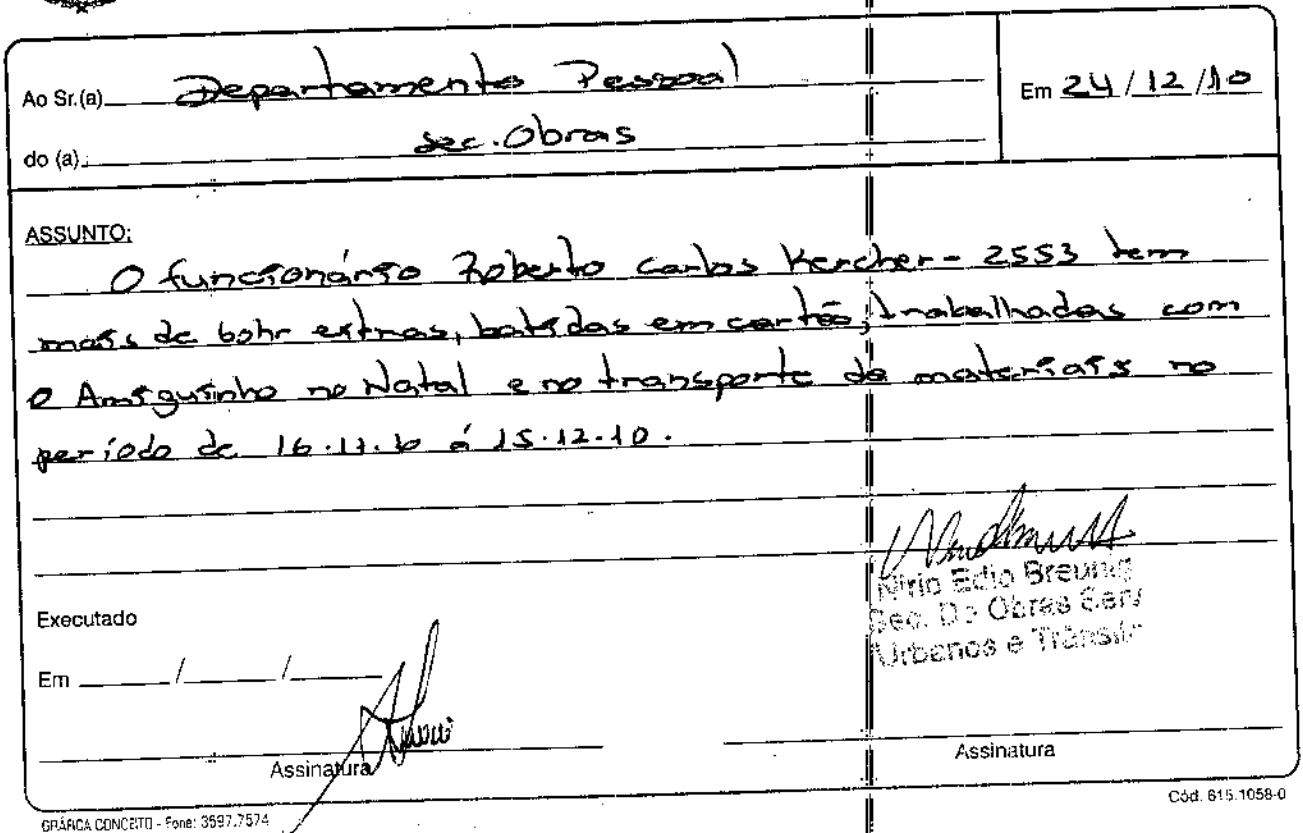 Ao Sr.(a) Departamento Pessoal
Em 24/12/10
do (a) Sec. Obras
ASSUNTO:
O funcionário Roberto Carlos Kercher - 2553 tem
mais de 60hr extras, batidas em cartão, trabalhadas com
o Amiguinho no Natal e no transporte de materiais no
período de 16.11.10 á 15.12.10.
Nirio Edio Breunig
Sec. De Obras Serv
Urbanos e Trânsito
Executado
Em / /
Assinatura
Assinatura
GRÁFICA CONCEITO - Fone: 3597.7574
Cód. 615.1058-0